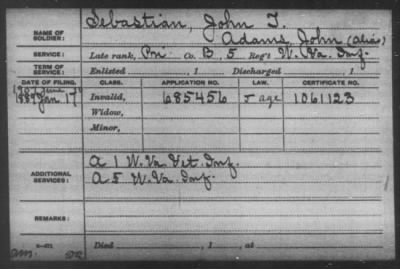 NAME OF SOLDIER: Sebastian, John T.
Adams, John (alias)
SERVICE: Late rank, Pvt Co. B, 5 Reg't W. Va. Inf.
TERM OF SERVICE: Enlisted , 1 Discharged , 1
DATE OF FILING. CLASS. APPLICATION NO. LAW. CERTIFICATE NO.
1907 June
1889 Jan 17 Invalid, 685456 age 1061123
Widow,
Minor,
ADDITIONAL SERVICES: A 1 W. Va. Vet. Inf.
A 5 W. Va. Inf.
REMARKS:
Died , 1 , at